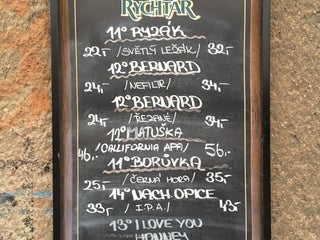 RYCHTÁŘ
11° RYZÁK
22,- /SVĚTLÝ LEŽÁK/ 32,-
12° BERNARD
24,- /NEFILTR/ 34,-
12° BERNARD
24,- /ŘEZANÉ/ 34,-
12° MATUŠKA
46,- /CALIFORNIA APA/ 56,-
11° BORŮVKA
25,- /ČERNÁ HORA/ 35,-
14° NACH OPICE
33,- /I.P.A./ 43,-
13° I LOVE YOU
HONNEY